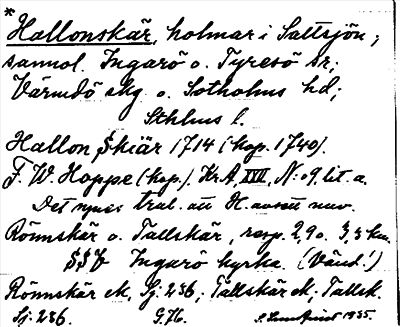 *
Hallonskär, holmar i Saltsjön;
sannol. Ingarö o. Tyresö sr;
Värmdö skg o. Sotholms hd;
Sthlms l.
Hallon Skiär 1714 (kop. 1740).
F. W. Hoppe (kop.). Kr.A, XVII, N:o 9. lit. a.
Det synes tral. att H. avsett nuv.
Rönnskär o. Tallskär, resp. 2,9 o. 3,3 km.
SSV Ingarö kyrka. (Vänd!)
Rönnskär ek, Sj. 236; Tallskär ek; Tallsk.
Sj: 236. G.76. 1935.